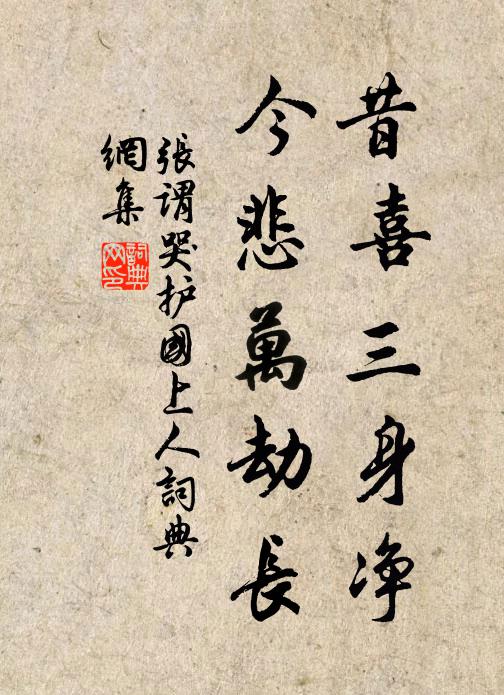 昔喜三身净
今悲萬劫長
張謂哭护國上人詞典
網集
詞典网印